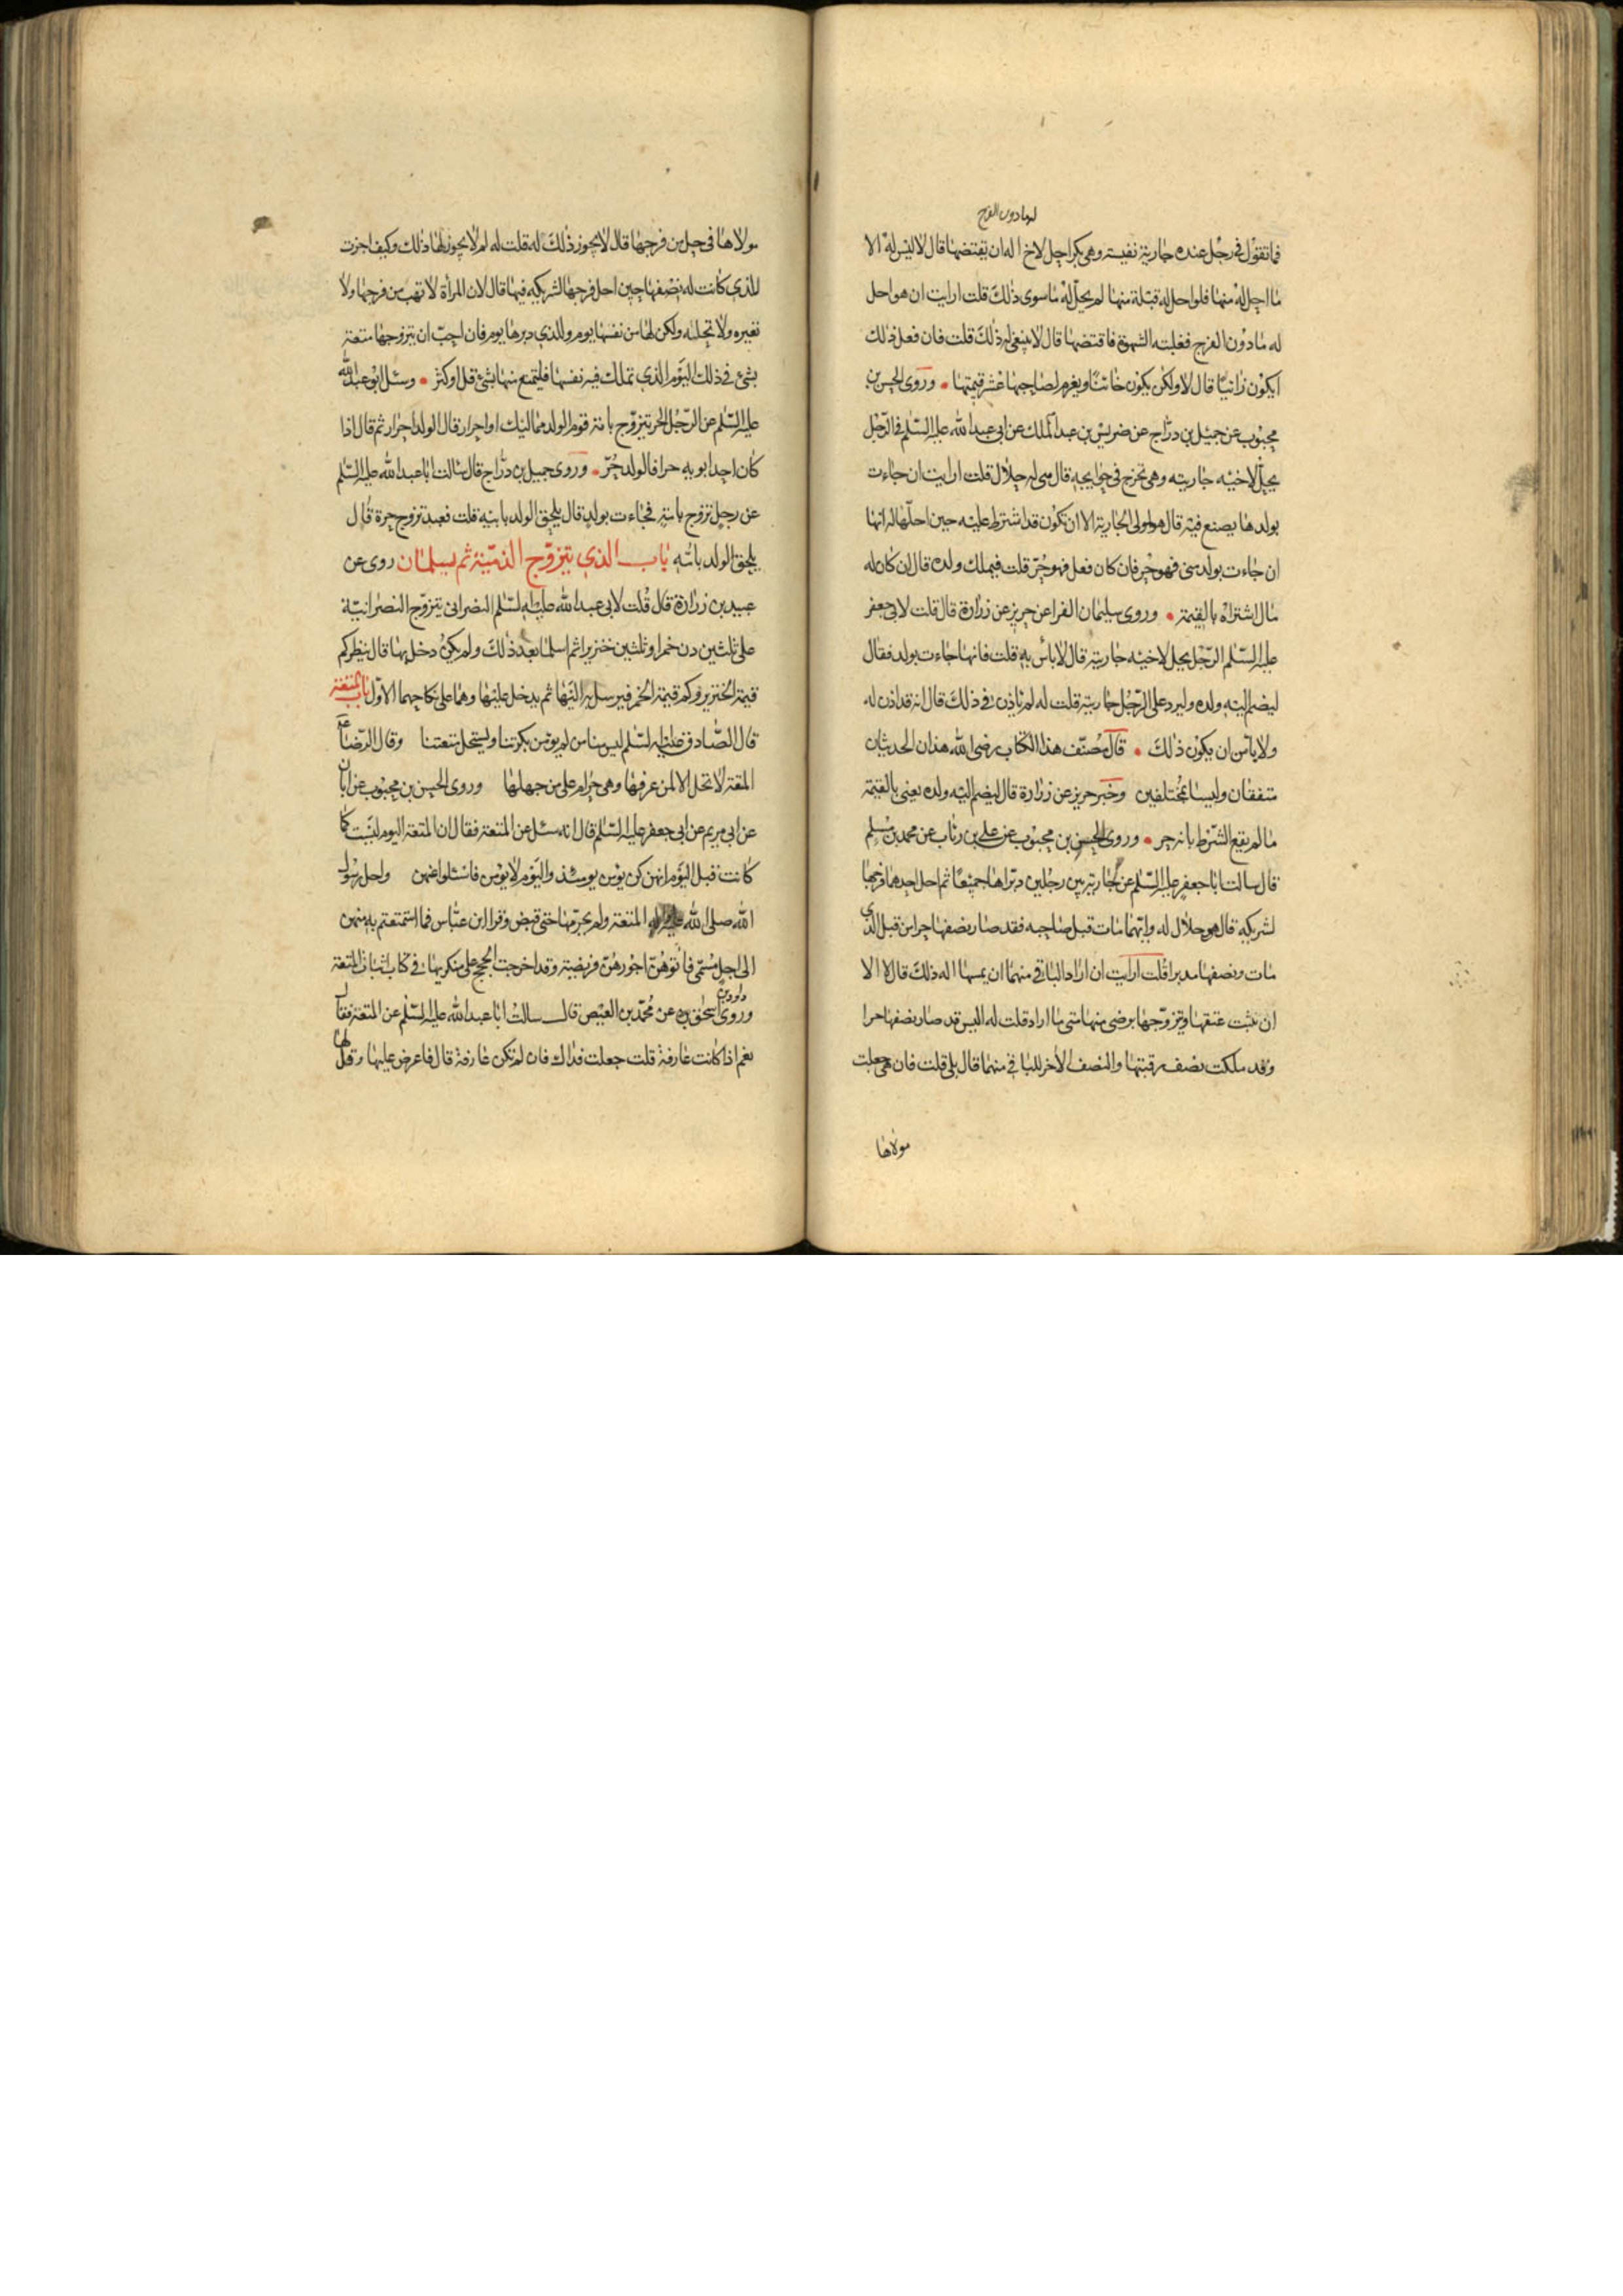 له ما دون الفرج
فما تقول في رجل عنده جارية نفيسة وهي بكر احل لاخ اله ان يفتضها قال لا ليس له الا
ما احل له منها فلو احل له قبلة منها لم يحل له ما سوى ذلك قلت ارايت ان هو احل
له ما دون الفرج فغلبته الشهوة فاقتضها قال لا ينبغي له ذلك قلت فان فعل ذلك
ايكون زانيا قال لا ولكن يكون خائنا ويغرم لصاحبها عشر قيمتها وروى الحسن بن
محبوب عن جميل بن دراج عن ضريس بن عبد الملك عن ابي عبد الله عليه السلم في الرجل
يحل لاخيه جاريته وهي تخرج في حوايجه قال هي له حلال قلت ارايت ان جاءت
بولد ما يصنع فيه قال هو لمولى الجارية الا ان تكون قد اشترط عليه حين احلها له انها
ان جاءت بولد مني فهو حر فان كان فعل فهو حر قلت فيملك ولده قال ان كان له
مال اشتراه بالقيمة وروى سليمان الفرا عن حريز عن زرارة قال قلت لابي جعفر
عليه السلم الرجل يحل لاخيه جاريته قال لا بأس به قلت فانها جاءت بولد فقال
ليضم اليه ولده وليرد على الرجل جاريته قلت له لم ياذن في ذلك قال انه قد اذن له
ولا يأمن ان يكون ذلك قال مصنف هذا الكتاب رضي الله هذان الحديثان
متفقان وليسا بمختلفين وخبر حريز عن زرارة قال ليضم اليه ولده يعني بالقيمة
ما لم يقع الشرط بانه حر وروى الحسن بن محبوب عن علي بن رئاب عن محمد بن مسلم
قال سالت ابا جعفر عليه السلم عن جارية بين رجلين دبراها جميعا ثم احل احدهما فرجها
لشريكه قال هو حلال له وايهما مات قبل صاحبه فقد صار نصفها حرا من قبل الذي
مات ونصفها مدبرا قلت ارايت ان اراد الباقي منهما ان يمسها اله ذلك قال لا الا
ان يثبت عتقها ويتزوجها برضى منها متى ما اراد قلت له اليس قد صار نصفها حرا
وقد ملكت نصف رقبتها والنصف الاخر للباقي منهما قال بلى قلت فان هي جعلت
مولاها
مولاها في حل من فرجها قال لا يجوز ذلك له قلت له لم لا يجوز لها ذلك وكيف اجزت
للذي كانت له نصفها حين احل فرجها لشريكه فيها قال لان المرأة لا تهب من فرجها ولا
تعيره ولا تحلله ولكن لها من نفسها يوم وللذي دبرها يوم فان احب ان يتزوجها متعة
بشئ في ذلك اليوم الذي تملك فيه نفسها فليتمتع منها بشئ قل او كثر وسئل ابو عبد الله
عليه السلم عن الرجل الحر يتزوج بامة قوم الولد مماليك او احرار قال الولد احرار ثم قال اذا
كان احد ابويه حرا فالولد حر وروى جميل بن دراج قال سالت ابا عبد الله عليه السلم
عن رجل تزوج بامة فجاءت بولد قال يلحق الولد بابيه قلت فعبد تزوج حرة قال
يلحق الولد بامه باب الذي يتزوج الذمية ثم يسلمان روى عن
عبيد بن زرارة قال قلت لابي عبد الله عليه السلم النصراني يتزوج النصرانية
على ثلثين دن خمرا وثلثين خنزيرا ثم اسلما بعد ذلك ولم يكن دخل بها قال ينظر كم
قيمة الخنزير وكم قيمة الخمر فيرسل به اليها ثم يدخل عليها وهما على نكاحهما الاول باب المتعة
قال الصادق عليه السلم ليس منا من لم يؤمن بكرتنا ويستحل متعتنا وقال الرضا ع
المتعة لا تحل الا لمن عرفها وهي حرام على من جهلها وروى الحسن بن محبوب عن ابان
عن ابي مريم عن ابي جعفر عليه السلم قال انه سئل عن المتعة فقال ان المتعة اليوم ليست كما
كانت قبل اليوم انهن كن يؤمن يومئذ واليوم لا يؤمن فاسئلوا عنهن واحل رسول
الله صلى الله المتعة ولم يحرمها حتى قبض وقرا ابن عباس فما استمتعتم به منهن
الى اجل مسمى فاتوهن اجورهن فريضة وقد اخرجت الحجج على منكريها في كتاب اثبات المتعة
وروى داود بن اسحق عن محمد بن العيص قال سالت ابا عبد الله عليه السلم عن المتعة فقال
نعم اذا كانت عارفة قلت جعلت فداك فان لم تكن عارفة قال فاعرض عليها وقل لها